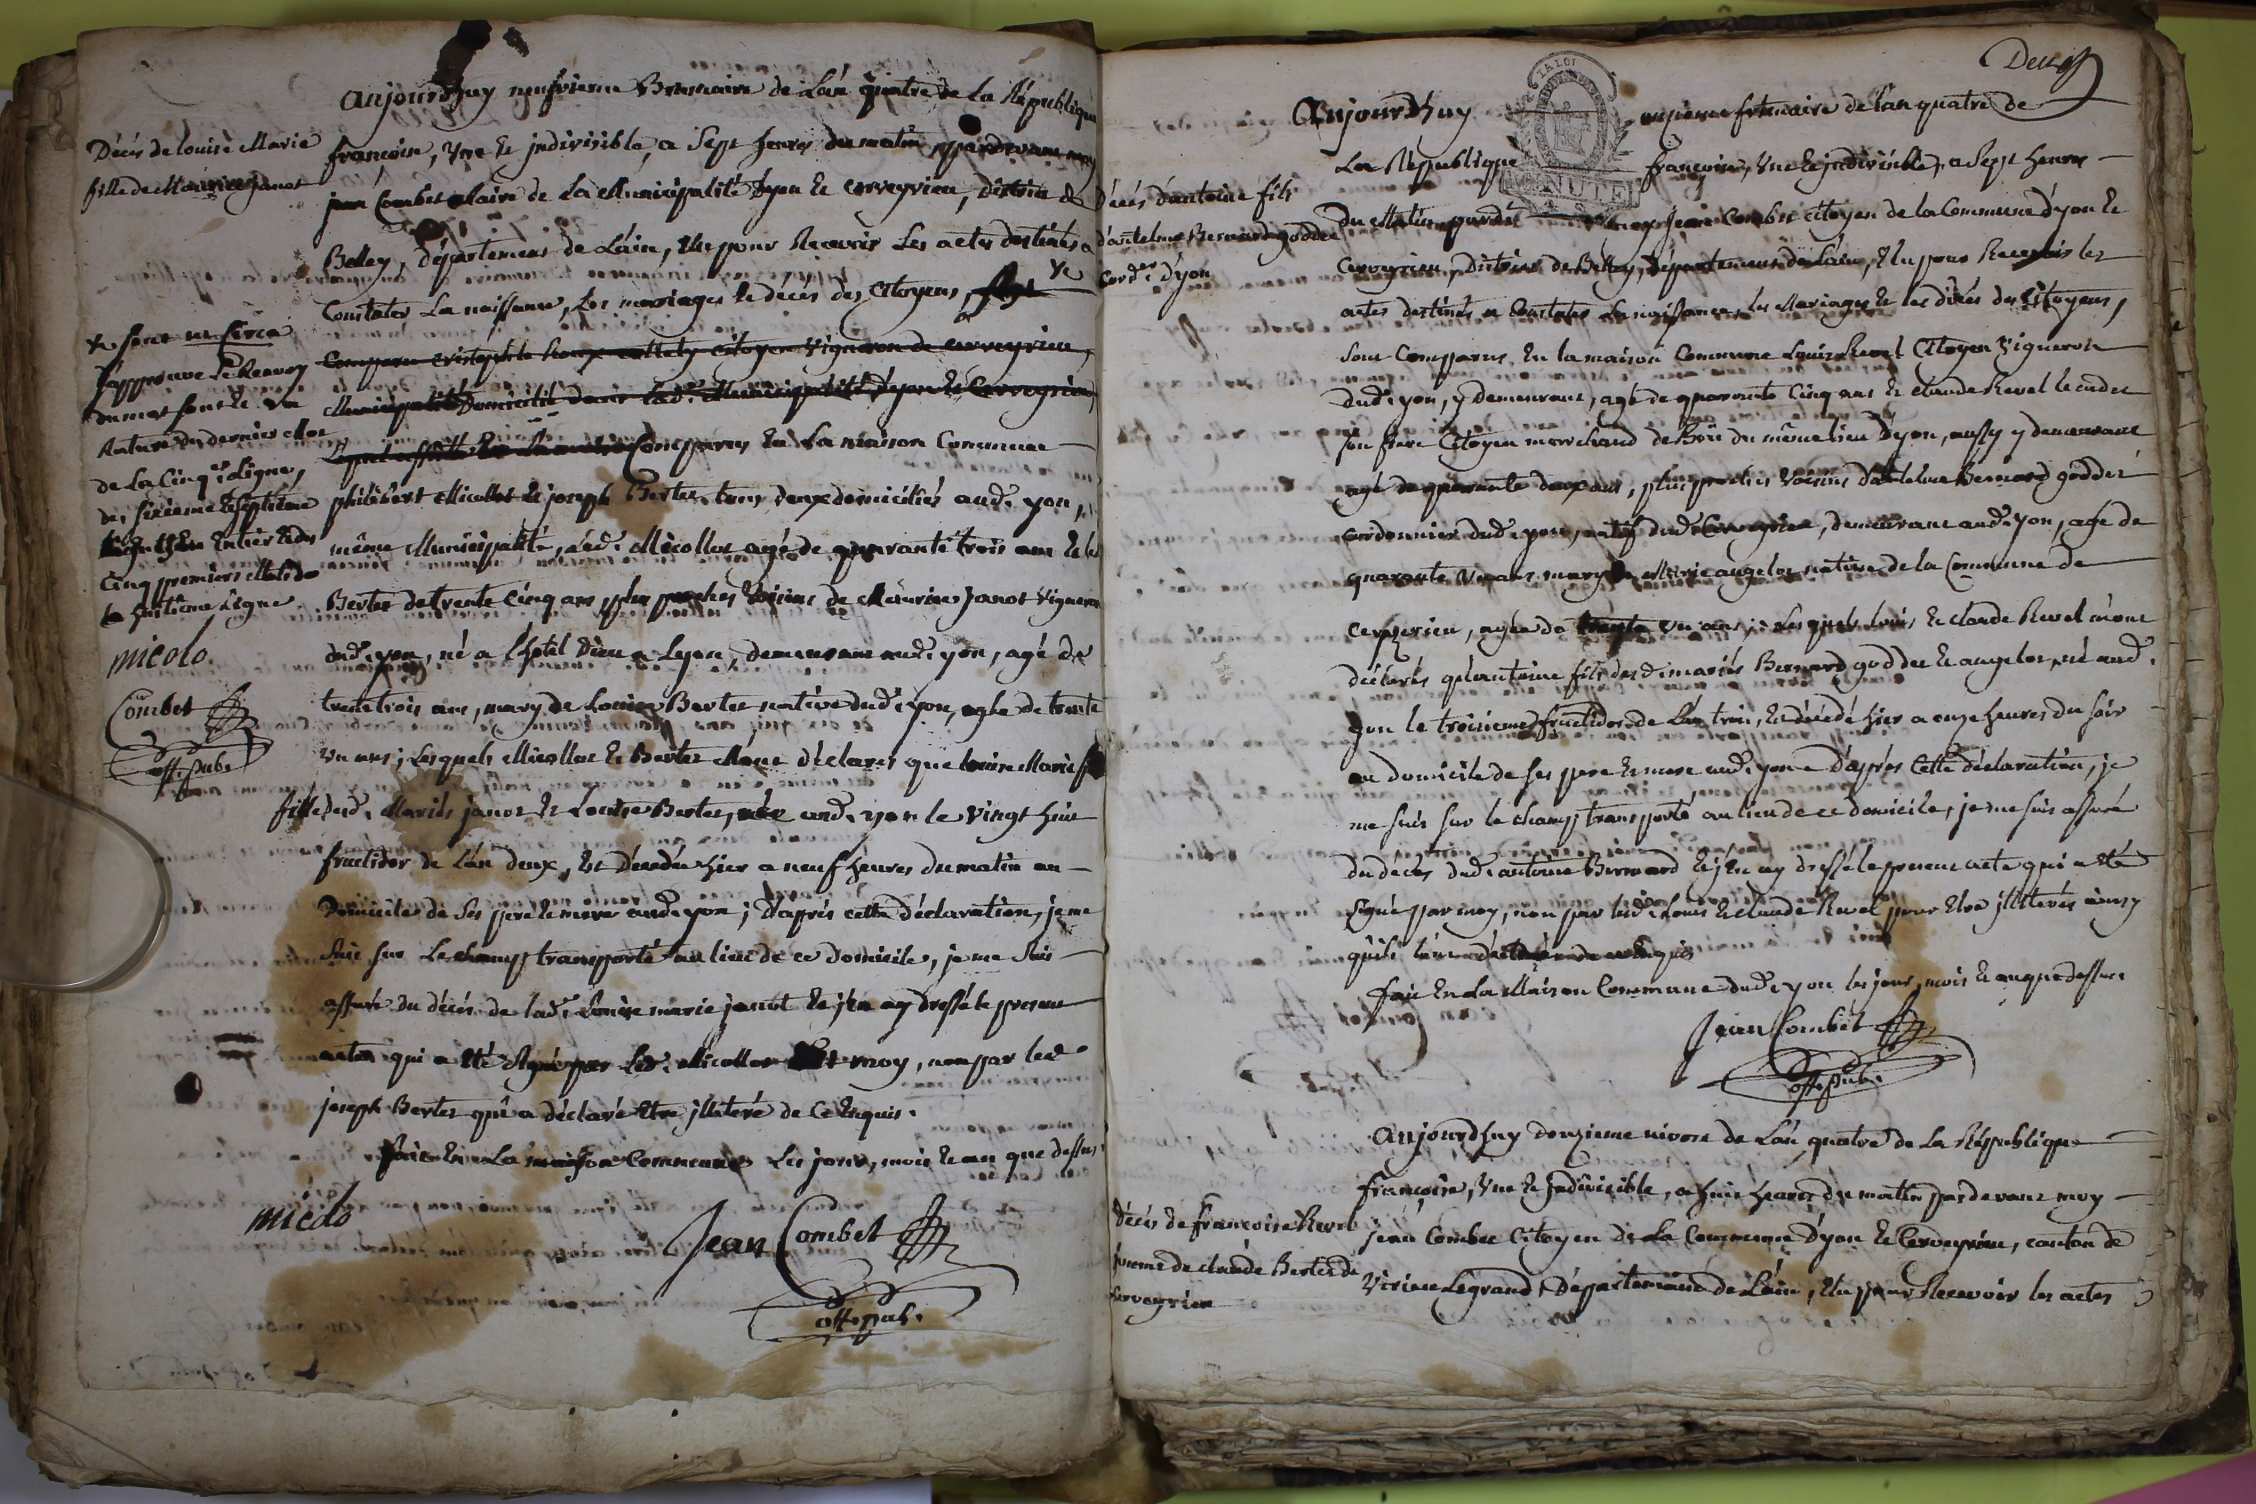 Aujourd'huy neufvieme Brumaire de L'án quatre de La République
Décés de Louise Marie
fille de Maurice Janot
françoise, Une et jndivisible, a Sept heures du matin pardevant moy
jean Combet Maire de La Municipalité d'yon et cerveyrieu, District de
Belley, département de L'áin, Elu pour Recevoir Les actes destinés a
Constater La naissance, Les mariages et décés des Citoyens,
J'approuve Le Renvoy
du mot sont et La
Rature du dernier Mot
de La Cinq.e Ligne,
des sixieme et septieme
cinq premiers Mots de
la huitieme Ligne
micolo
Combet
off. pub.
Comparu cristophle Roux citoyen Vigneron de cerveyrieu,
Municipalité d'yon et Cerveyrieu
Comparus En La maison Commune
philibert Micollet et joseph Bertet tous deux domiciliés aud. yon,
même Municipalité, led. Micollet agé de quarante trois ans et led.
Bertet de trente cinq ans, plus proches Voisins de Maurice Janot Vigneron
dud. yon, né a L'hotel Dieu a Lyon, demeurant aud. yon, agé de
trente trois ans, mary de Louise Bertet native dud. yon, agée de trente
un ans; Lesquels Micollet et Bertet M'ont déclarés que Louise Marie
fille dud. Mariés janot et Louise Bertet, née aud. yon le vingt huit
fructidor de L'án deux, Est Décédée hier a neuf heures du matin au
Domicile de Ses pere et mere aud. yon; d'aprés cette déclaration, je me
Suis sur Le champ transporté au lieu de ce domicile, je me Suis
assuré du décés de lad. Louise marie janot et j'en ay dressé le present
acte qui a été Signé par Led. Micollet Et moy, non par led.
joseph Bertet qui a déclaré Etre jlliteré de Ce Enquis.
fait En La maison Commune Les jour, mois et an que dessus
micolo
Jean Combet
off. pub.
Deux
LA LOI
MINUTE
Aujourd'huy onzieme frimaire de L'an quatre de
La République françoise, Une et jndivisible, a Sept heures
Décés d'antoine fils
d'antelme Bernard goddet
Cord.er d'yon
du Matin pardevant moy Jean Combet Citoyen de la Commune d'yon et
Cerveyrieu, District de Belley, département de L'áin, Elu pour Recevoir les
actes destinés a Constater La naissance, les Mariages et les décés des Citoyens,
sont Comparus En la maison Commune Louis Revel Citoyen Vigneron
dud. yon, y demeurant, agé de quarante Cinq ans et claude Revel le cadet
son frere Citoyen marchand de Bois du même lieu d'yon, aussy y demeurant
agé de quarante deux ans, plus proches Voisins d'antelme Bernard goddet
cordonnier dud. yon, natif dud. Cerveyrieu, demeurant aud. yon, agé de
quarante Un ans, mary de Marie angelot native de la Commune de
Ceyzerieu, agée de trente un ans; Lesquels Louis et claude Revel m'ont
déclarés qu'antoine fils desd. mariés Bernard goddet et angelot, né aud.
yon le troisieme fructidor de L'án trois, Est décédé hier a onze heures du soir
au domicile de ses pere et mere aud. yon d'aprés Cette déclaration, je
me suis sur le champ transporté au lieu de ce domicile, je me suis assuré
du décés dud. antoine Bernard et j'en ay dressé le present acte qui a été
signé par moy, non par lesd. Louis et claude Revel pour Etre jlliterés ainsy
qu'ils l'ont déclaré de ce Enquis
fait En La Maison Commune dud. yon les jour, mois et an que dessus.
Jean Combet
off. pub.
Aujourd'huy douzieme nivose de L'án quatre de La République
françoise, Une et Indivisible, a huit heures du matin pardevant moy
Décés de françoise Revel
femme de claude Bertet de
cerveyrieu
jean Combet Citoyen de La Commune d'yon et Cerveyrieu, canton de
Virieu Legrand, département de L'áin, Elu pour Recevoir les actes